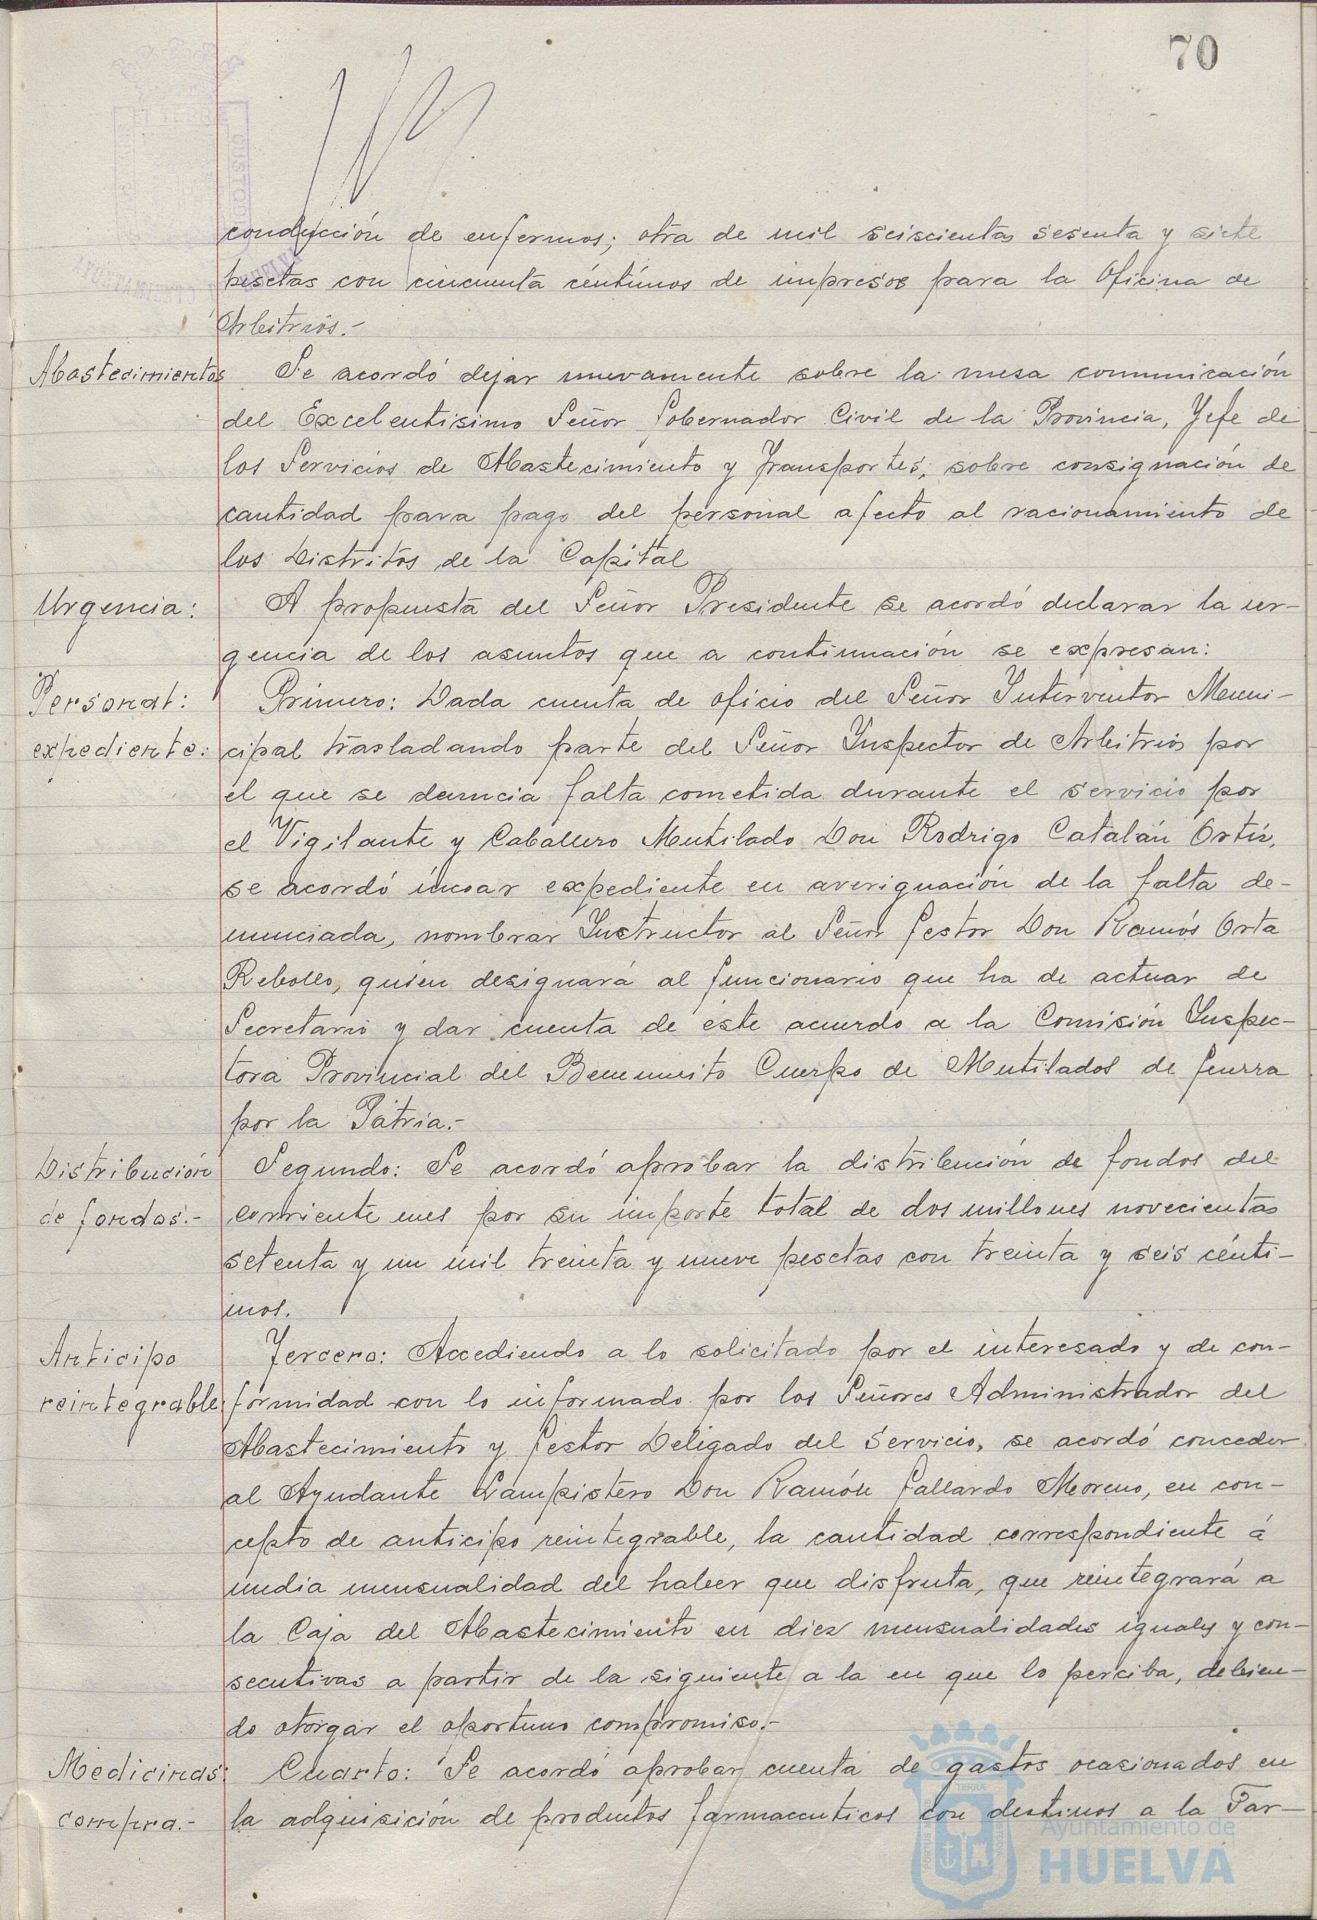 70
conducción de enfermos; otra de mil seiscientas sesenta y siete
pesetas con cincuenta céntimos de impresos para la Oficina de
Arbitrios.-
Abastecimientos
Se acordó dejar nuevamente sobre la mesa comunicación
del Excelentisimo Señor Gobernador Civil de la Provincia, Jefe de
los Servicios de Abastecimiento y Transportes, sobre consignación de
cantidad para pago del personal afecto al racionamiento de
los Distritos de la Capital
Urgencia:
A propuesta del Señor Presidente se acordó declarar la ur-
gencia de los asuntos que a continuación se expresan:
Personal:
Primero: Dada cuenta de oficio del Señor Interventor Muni-
expediente:
cipal trasladando parte del Señor Inspector de Arbitrios por
el que se denuncia falta cometida durante el servicio por
el Vigilante y Caballero Mutilado Don Rodrigo Catalán Ortíz,
se acordó incoar expediente en averiguación de la falta de-
nunciada, nombrar Instructor al Señor Gestor Don Ramós Orta
Rebollo, quién designará al funcionario que ha de actuar de
Secretario y dar cuenta de éste acuerdo a la Comisión Inspec-
tora Provincial del Benemerito Cuerpo de Mutilados de Guerra
por la Pátria.-
Distribución
Segundo: Se acordó aprobar la distribución de fondos del
de fondos.-
corriente mes por su importe total de dos millones novecientas
setenta y un mil treinta y nueve pesetas con treinta y seis cénti-
mos.
Anticipo
Tercero: Accediendo a lo solicitado por el interesado y de con-
reintegrable
formidad con lo informado por los Señores Administrador del
Abastecimiento y Gestor Deligado del Servicio, se acordó conceder
al Ayudante Lampistero Don Ramón Gallardo Moreno, en con-
cepto de anticipo reintegrable, la cantidad correspondiente á
media mensualidad del haber que disfruta, que reintegrará a
la Caja del Abastecimiento en diez mensualidades iguales y con-
secutivas a partir de la siguiente a la en que lo perciba, debien-
do otorgar el oportuno compromiso.-
Medicinas:
Cuarto: Se acordó aprobar cuenta de gastos ocasionados en
compra.-
la adquisición de productos farmaceuticos con destinos a la Far-
Ayuntamiento de
HUELVA